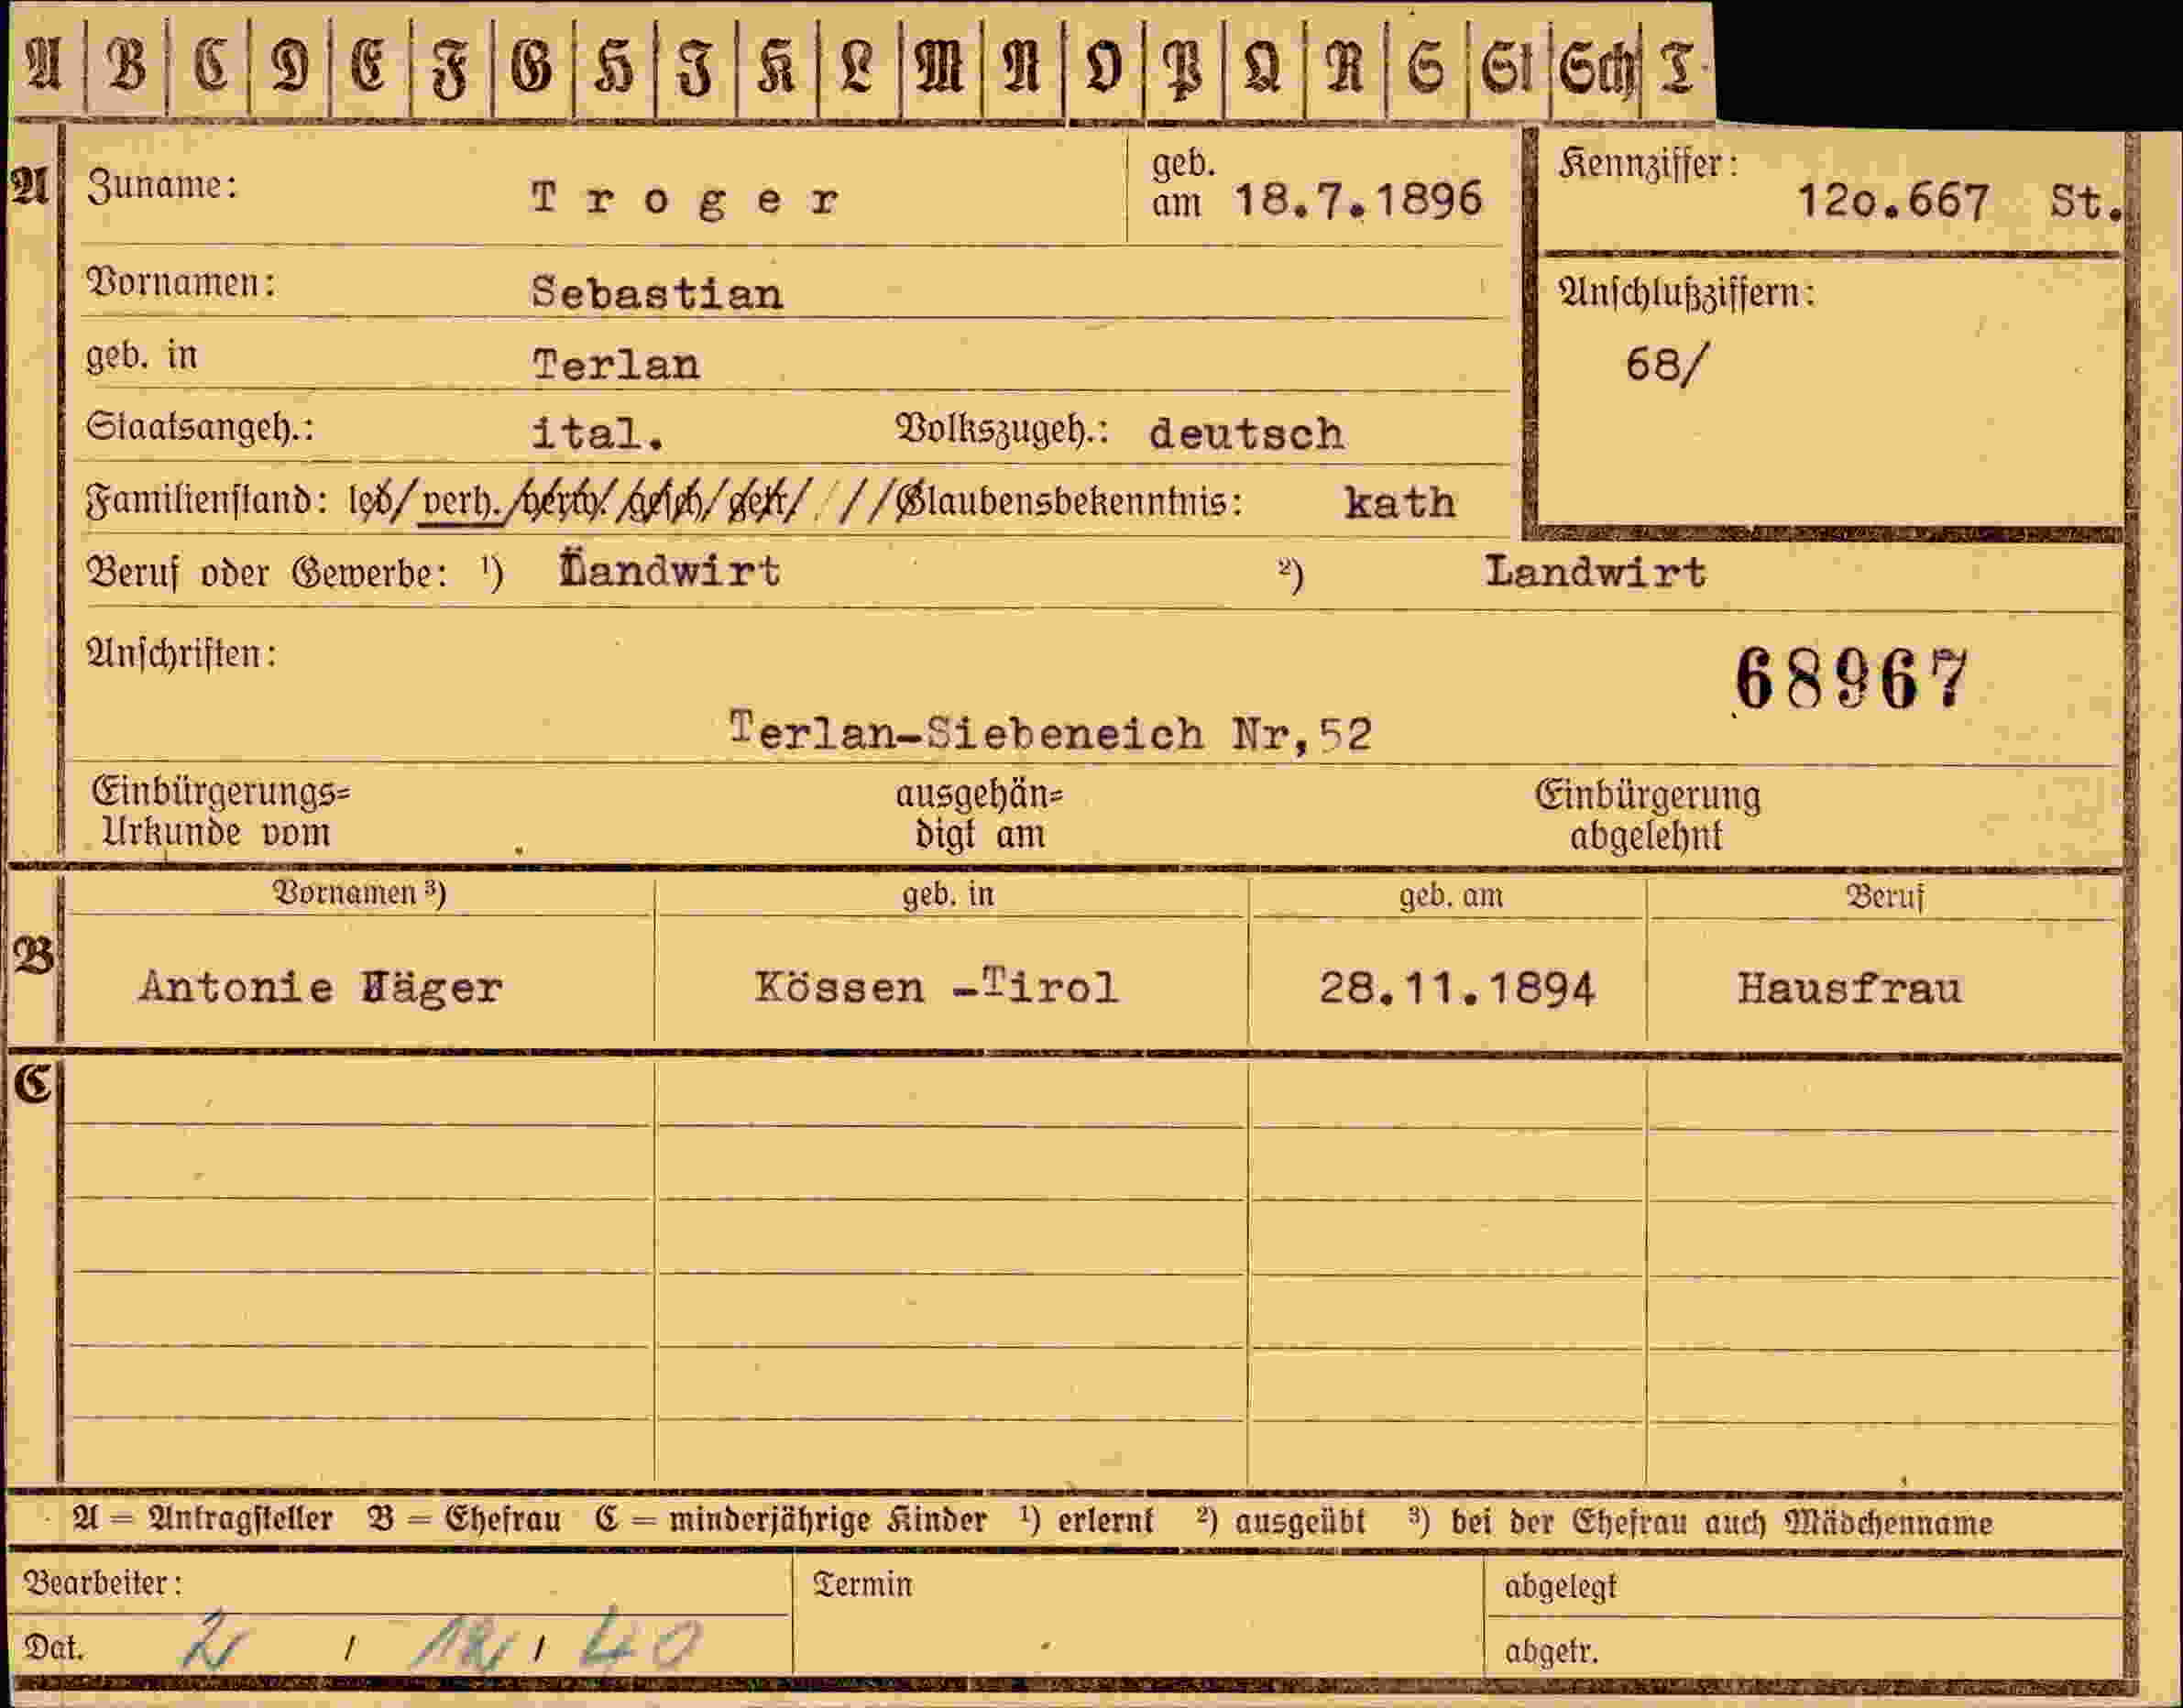 A B C D E F G H J K L M N O P Q R S St Sch T
A Zuname: Troger geb. am 18.7.1896 Kennziffer: 12o.667 St.
Vornamen: Sebastian Anschlußziffern:
geb. in Terlan 68/
Staatsangeh.: ital. Volkszugeh.: deutsch
Familienstand: led/ verh. /verw./gesch/getr/ / //Glaubensbekenntnis: kath
Beruf oder Gewerbe: ¹) Landwirt ²) Landwirt
Anschriften: 68967
Terlan-Siebeneich Nr,52
Einbürgerungs= ausgehän= Einbürgerung
Urkunde vom digt am abgelehnt
Vornamen ³) geb. in geb. am Beruf
B Antonie Jäger Kössen -Tirol 28.11.1894 Hausfrau
C
A = Antragsteller B = Ehefrau C = minderjährige Kinder ¹) erlernt ²) ausgeübt ³) bei der Ehefrau auch Mädchenname
Bearbeiter: Termin abgelegt
Dat. 2 / 12 / 40 abgetr.